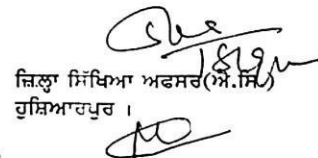 ਜ਼ਿਲ੍ਹਾ ਸਿੱਖਿਆ ਅਫਸਰ(ਐ.ਸਿ)
ਹੁਸ਼ਿਆਰਪੁਰ ।